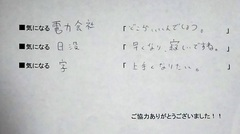 ■気になる 電力会社 「どこがいいんでしょう。」
■気になる 日没 「早くなり、寂しいですね。」
■気になる 字 「上手くなりたい。」
ご協力ありがとうございました!!